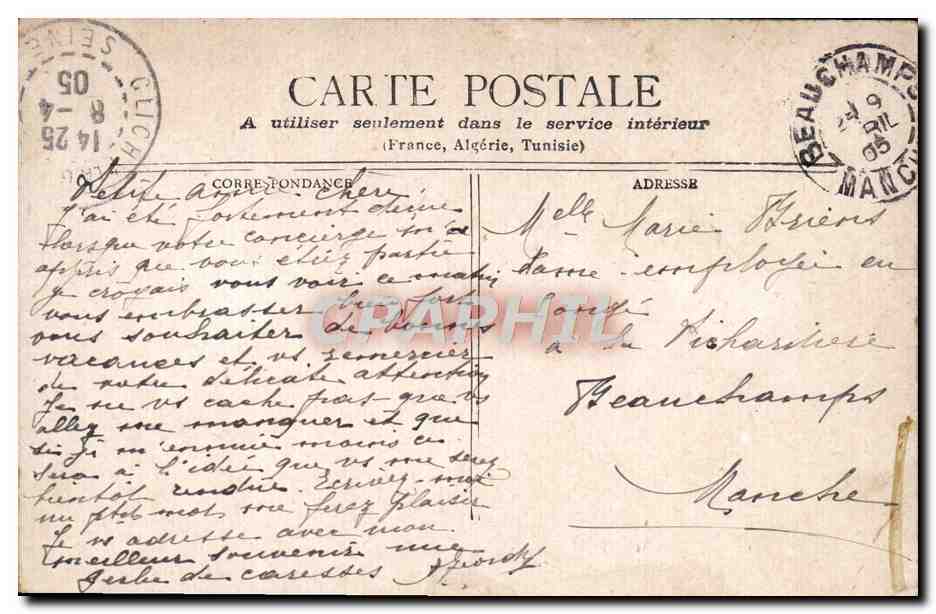 CLICHY
SEINE
14 25
8 - 4
05
BEAUCHAMPS
MANCHE
9
AVRIL
05
CARTE POSTALE
A utiliser seulement dans le service intérieur
(France, Algérie, Tunisie)
CORRESPONDANCE
ADRESSE
Petite amie chère
J'ai été fortement déçue
lorsque votre concierge m'a
appris que vous étiez partie
je croyais vous voir ce matin
vous embrasser bien fort
vous souhaiter de bonnes
vacances et vs remercier
de votre délicate attention
Je ne vs cache pas que vs
allez me manquer et que
si je m'ennuie moins ce
sera à l'idée que vs me serez
bientôt rendue. Ecrivez-moi
un ptit mot me ferez plaisir
Je vs adresse avec mon
meilleur souvenir une
de caresses
Melle Marie
Dame employée en
congé
à la
Beauchamps
Manche
CPAPHIL